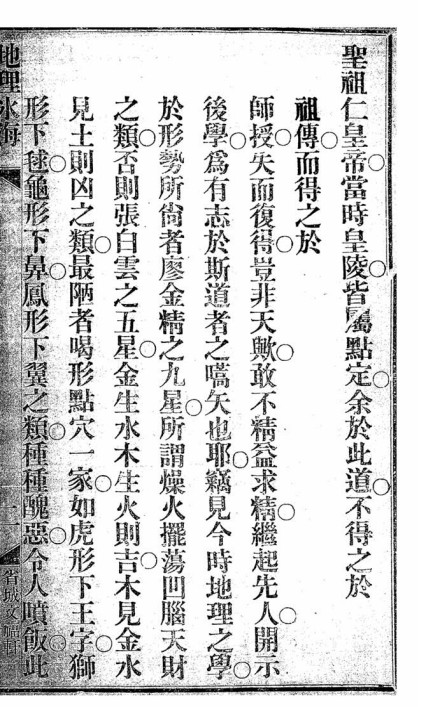 聖祖仁皇帝○當時皇陵○皆屬點定○余於此道○不得之於
祖傳○而得之於
師授○失而復得○豈非天歟○敢不精益求精○繼起先人○開示
後學○爲有志於斯道者之嚆矢也耶○竊見今時地理之學○
於形勢所尙者廖金精之九星○所謂燥火擺蕩凹腦天財
之類○否則張白雲之五星○金生水木生火則吉○木見金水
見土則凶之類○最陋者喝形點穴一家○如虎形下王字○獅
形下毬○龜形下鼻○鳳形下翼之類○種種醜惡○令人噴飯○此
地理水
省城文